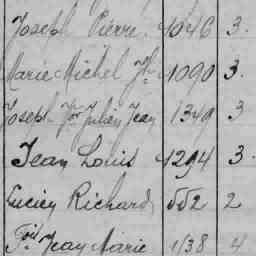 Joseph Pierre 1046 3.
Marie Michel Jh 1090 3.
Joseph For Julien Jean 1349 3
Jean Louis 1294 3.
Lucien Richard 552 2
Fois Jean Marie 1138 4